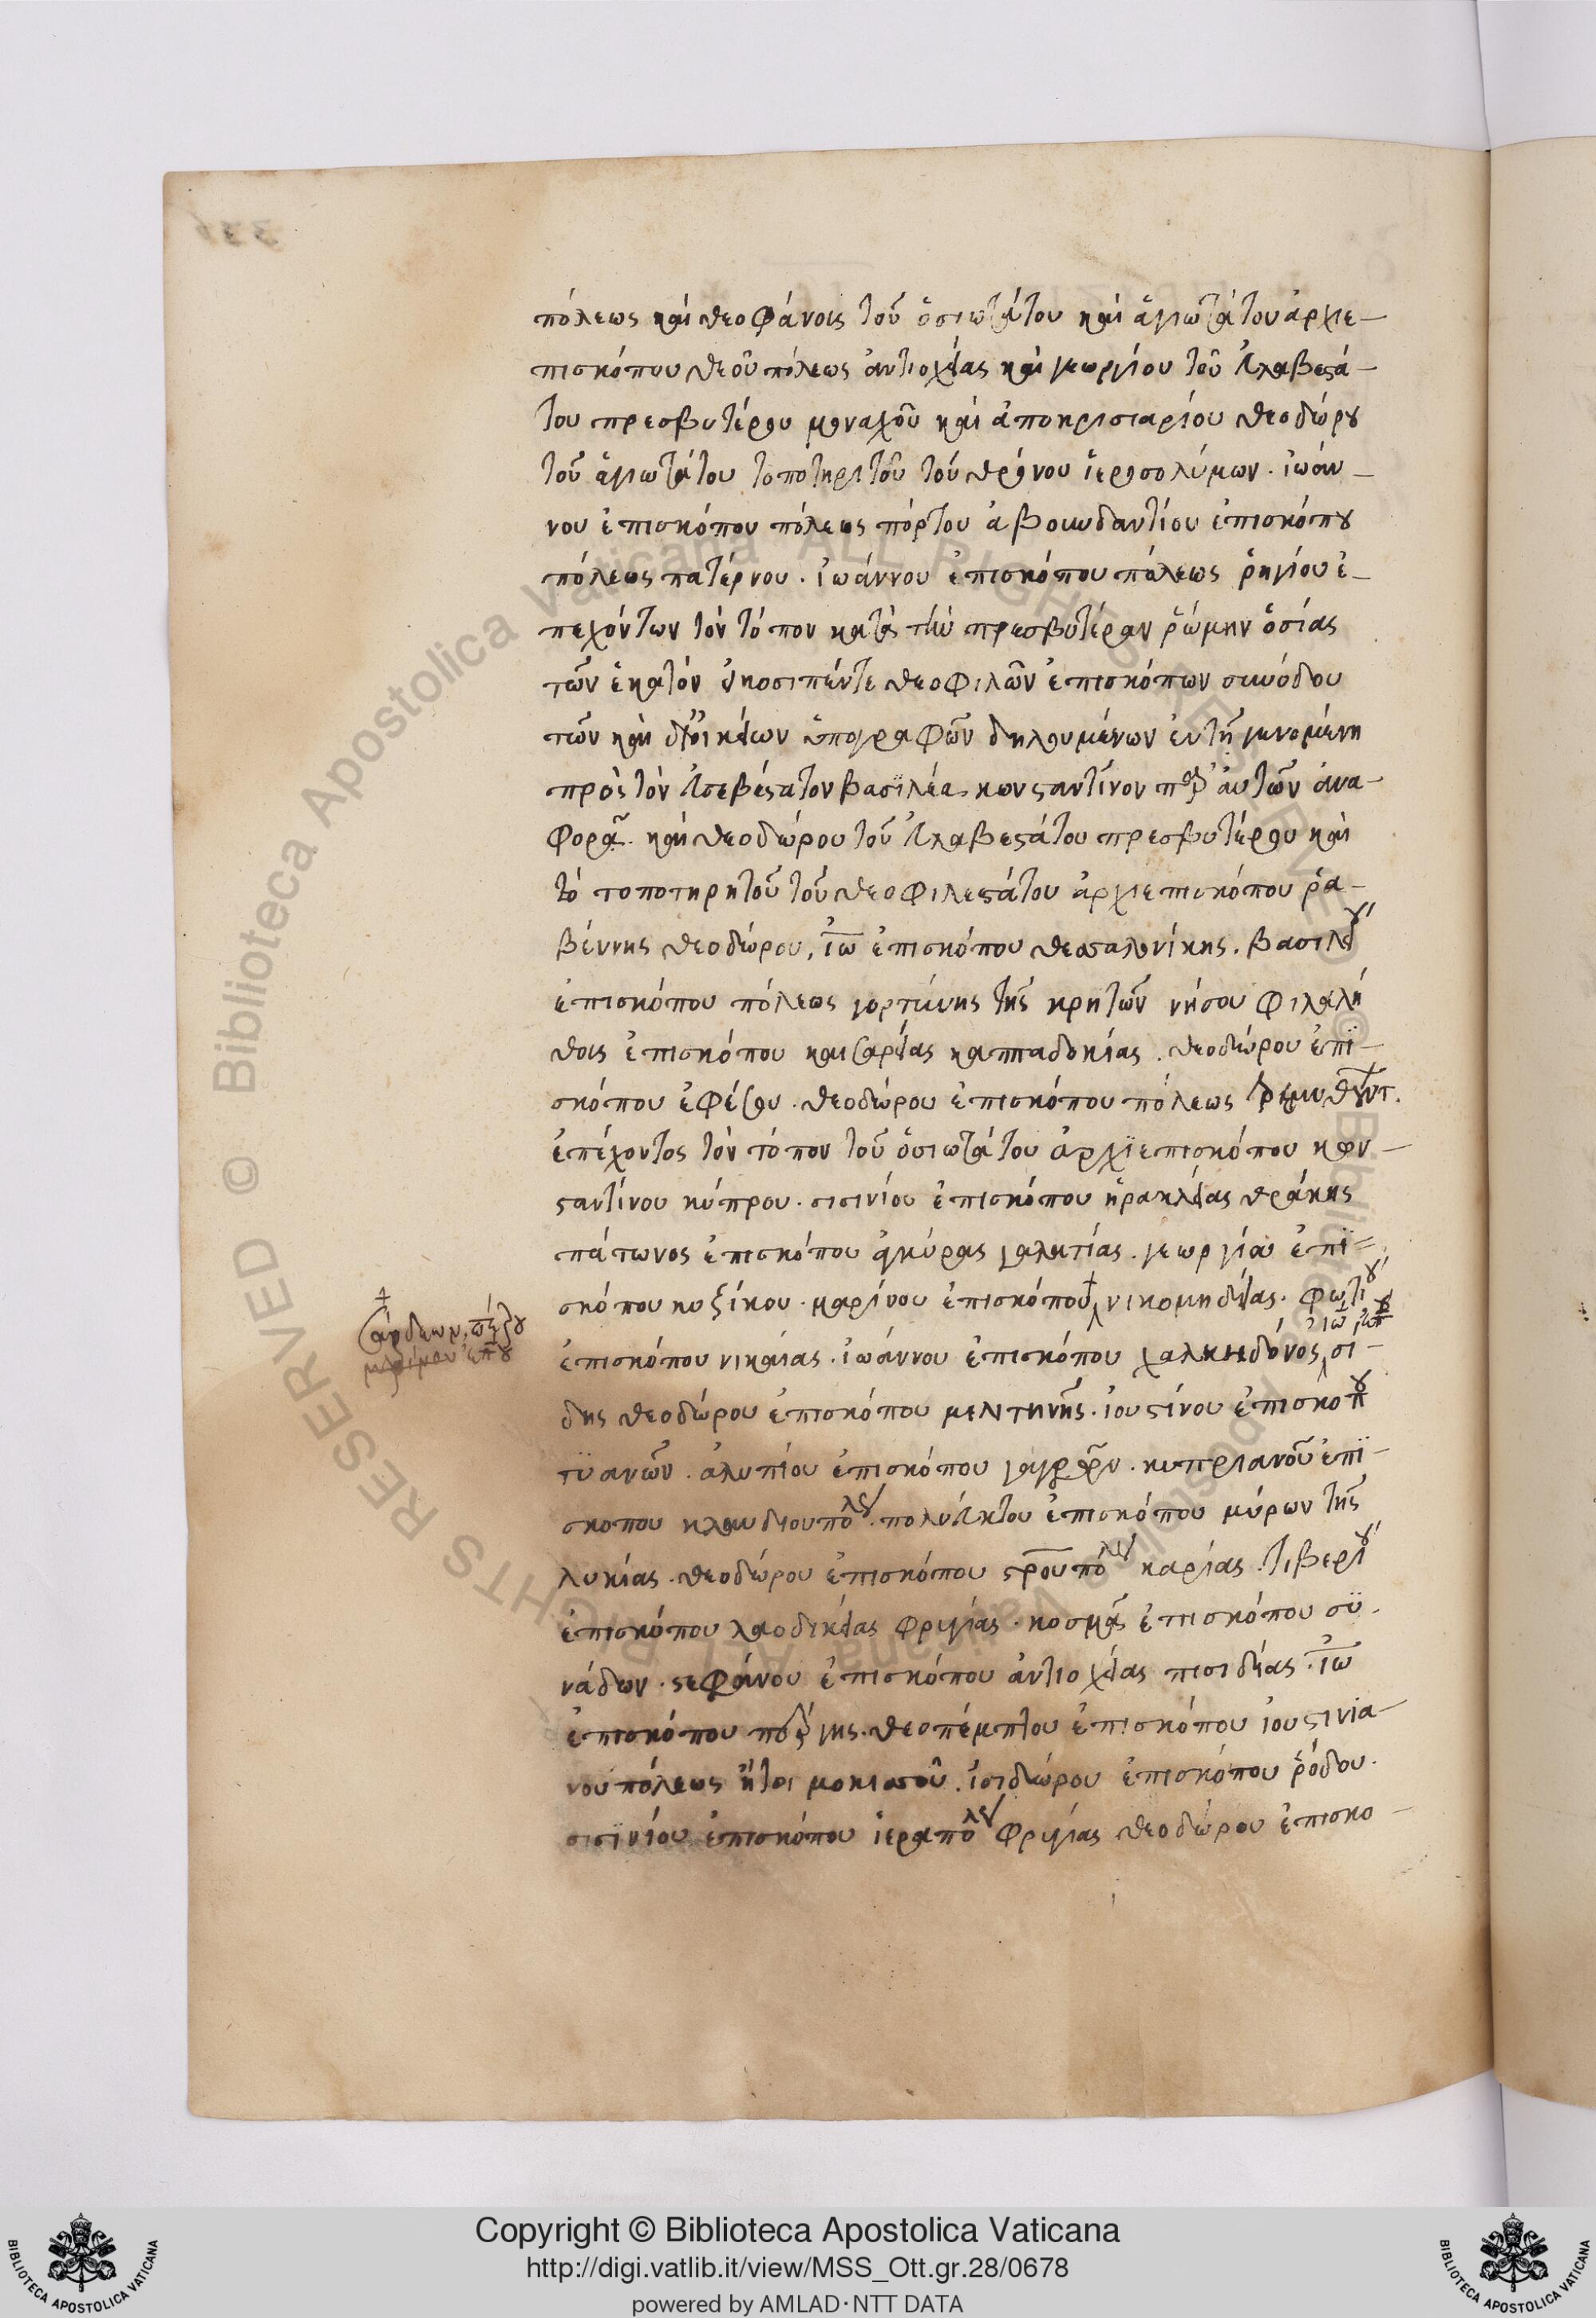 πόλεως καὶ θεοφάνους τοῦ ὁσιωτάτου καὶ ἁγιωτάτου ἀρχιε-
πισκόπου θεοῦ πόλεως ἀντιοχείας καὶ γεωργίου τοῦ εὐλαβεστά-
του πρεσβυτέρου μοναχοῦ καὶ ἀποκρισιαρίου θεοδώρου
τοῦ ἁγιωτάτου τοποτηριτοῦ τοῦ θρόνου ἱεροσολύμων. ἰωάν-
νου ἐπισκόπου πόλεως πόρτου ἀβουνδαντίου ἐπισκόπου
πόλεως πατέρνου. ἰωάννου ἐπισκόπου πόλεως ῥηγίου ἐ-
πεχόντων τὸν τόπον κατὰ τὴν πρεσβυτέραν ῥώμην ὁσίας
τῶν ἑκατὸν εἰκοσιπέντε θεοφιλῶν ἐπισκόπων συνόδου
τῶν καὶ δι' οἰκείων ὑπογραφῶν δηλουμένων ἐν τῇ γενομένη
πρὸς τὸν εὐσεβέστατον βασιλέα κωνσταντίνον παρ' αὐτῶν ἀνα-
φορᾶ. καὶ θεοδώρου τοῦ εὐλαβεστάτου πρεσβυτέρου καὶ
τὸ τοποτηρητοῦ τοῦ θεοφιλεστάτου ἀρχιεπισκόπου ῥα-
βέννης θεοδώρου, ἰω ἐπισκόπου θεσσαλονίκης. βασιλείου
ἐπισκόπου πόλεως γορτύνης τῆς κρητῶν νήσου φιλαλή
θους ἐπισκόπου καισαρείας καππαδοκίας. θεοδώρου ἐπι-
σκόπου ἐφέσου. θεοδώρου ἐπισκόπου πόλεως
ἐπέχοντος τὸν τόπον τοῦ ὁσιωτάτου ἀρχιεπισκόπου κων-
σταντίνου κύπρου. σισινίου ἐπισκόπου ἡρακλείας θράκης
πάτωνος ἐπισκόπου ἀγκύρας γαλατίας. γεωργίου ἐπι=
σκόπου κυζίκου. μαρίνου ἐπισκόπου νικομηδείας. φωτίου
ἐπισκόπου νικαίας. ἰωάννου ἐπισκόπου χαλκηδόνος, ἰω σί-
δης θεοδώρου ἐπισκόπου μελιτηνῆς. ἰουστίνου ἐπισκόπου
τυανῶν. ἀλυπίου ἐπισκόπου γαγγρῶν. κυπριανοῦ ἐπι-
σκοπου κλαυδιουπόλεως. πολυεύκτου ἐπισκόπου μύρων τῆς
λυκίας. θεοδώρου ἐπισκόπου σταυρουπόλεως καρίας. τιβερίου
ἐπισκόπου λαοδικείας φρυγίας. κοσμᾶ ἐπισκόπου συ-
νάδων. στεφάνου ἐπισκόπου ἀντιοχείας πισιδίας. ἰω
ἐπισκόπου πέργης. θεοπέμπτου ἐπισκόπου ἰουστινια-
νουπόλεως ἤτοι μοκισσοῦ. ἰσιδώρου ἐπισκόπου ῥόδου.
σισινίου ἐπισκόπου ἱεραπόλεως φρυγίας θεοδώρου ἐπισκο-
Copyright © Biblioteca Apostolica Vaticana
http://digi.vatlib.it/view/MSS_Ott.gr.28/0678
powered by AMLAD·NTT DATA
BIBLIOTECA APOSTOLICA VATICANA
BIBLIOTECA APOSTOLICA VATICANA